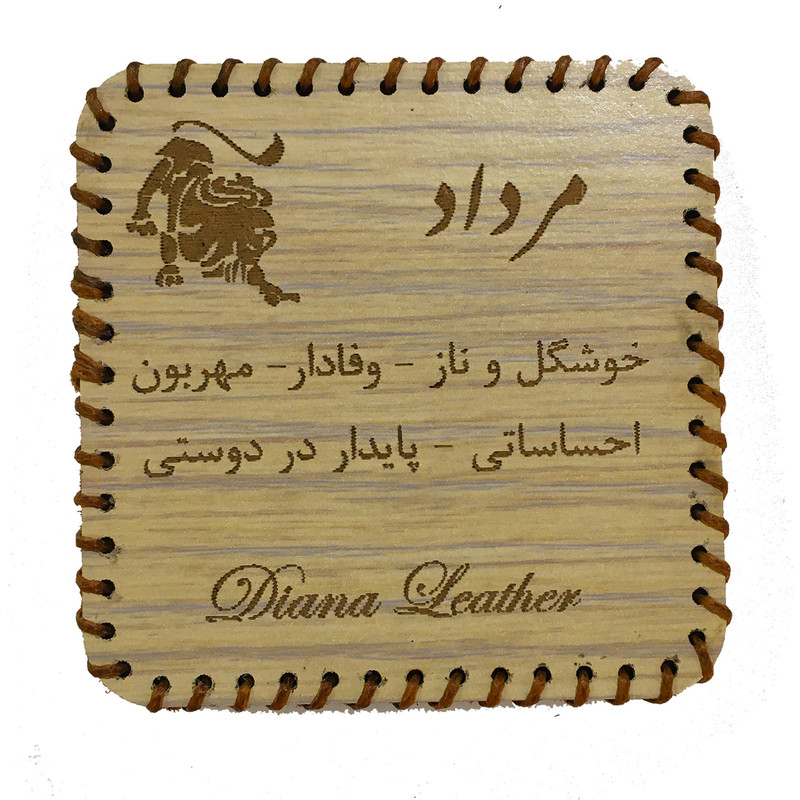 مرداد
خوشگل و ناز - وفادار- مهربون
احساساتی - پایدار در دوستی
Diana Leather